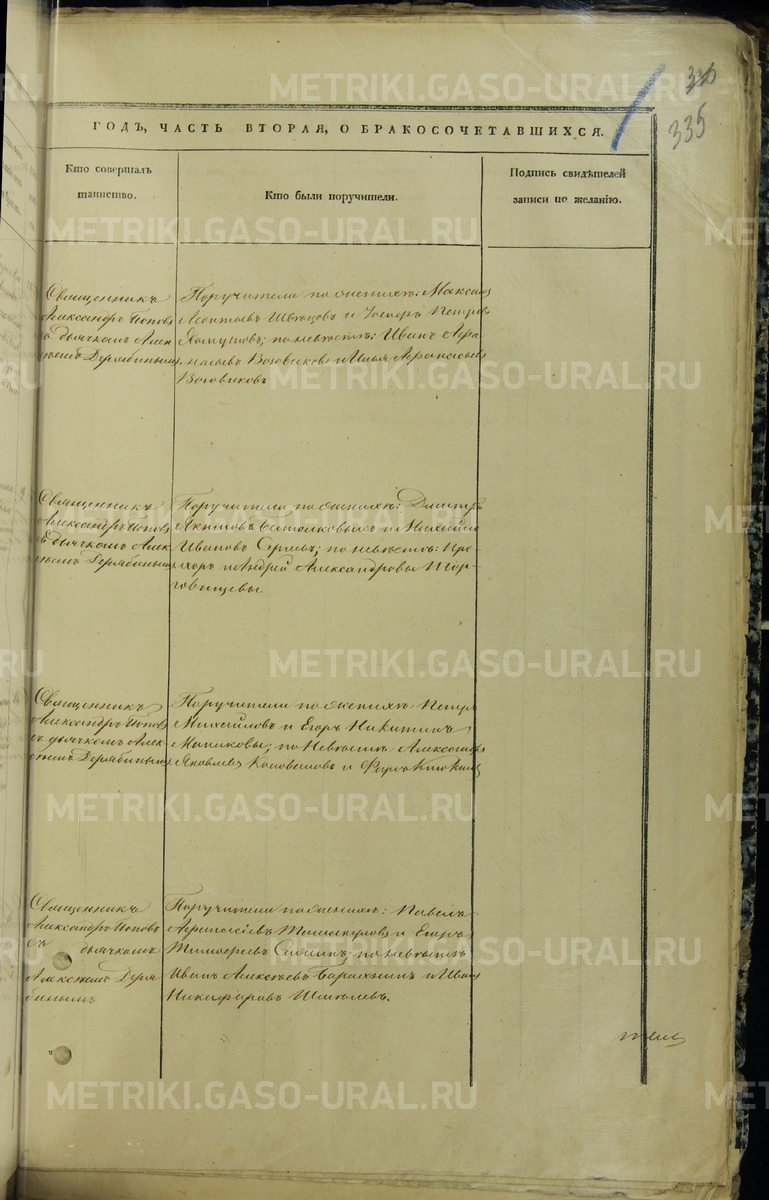 330
335
ГОДЪ, ЧАСТЬ ВТОРАЯ, О БРАКОСОЧЕТАВШИХСЯ.
Кто совершалъ
таинство.
Кто были поручители.
Подпись свидѣтелей
записи по желанію.
Священникъ
Александръ Поповъ
съ дьячкомъ Алек
сѣемъ Дерябинымъ
Поручители по женихѣ: Максимъ
Леонтьевъ Швецовъ и Петровъ
по невѣстѣ: Иванъ Афа
насьевъ Возовиковъ и Илья Афанасьевъ
Возовиковъ
Священникъ
Александръ Поповъ
съ дьячкомъ Алек
сѣемъ Дерябинымъ
Поручители по женихѣ: Дмитрій
Акимовъ и Михайло
Ивановъ по невѣстѣ: Про-
хоръ и Андрей Александровы Торо-
говищевы.
Священникъ
Александръ Поповъ
съ дьячкомъ Алек-
сѣемъ Дерябинымъ
Поручители по женихѣ: Петръ
Михайловъ и Егоръ Никитинъ
по невѣстѣ: Александръ
Яковлевъ Коноваловъ и
Священникъ
Александръ Поповъ
съ дьячкомъ
Алексѣемъ Деря
бинымъ
Поручители по женихѣ: Павелъ
и Егоръ
Тимофеевъ по невѣстѣ
Иванъ Алексѣевъ и Иванъ
Никифоровъ
METRIKI.GASO-URAL.RU